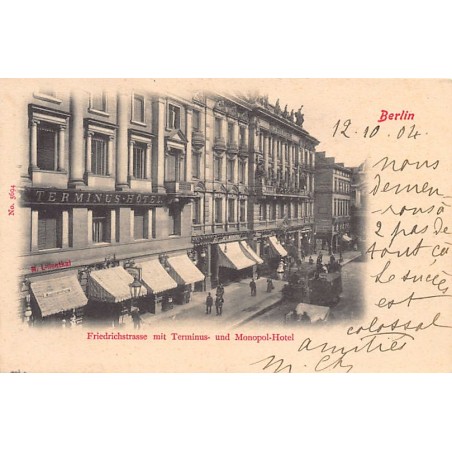 Berlin
12.10 04.
nous
demen
rons à
2 pas de
tout ça
le succès
est
colossal
amitiés
TERMINUS-HÔTEL
No. 3694
Friedrichstrasse mit Terminus- und Monopol-Hotel